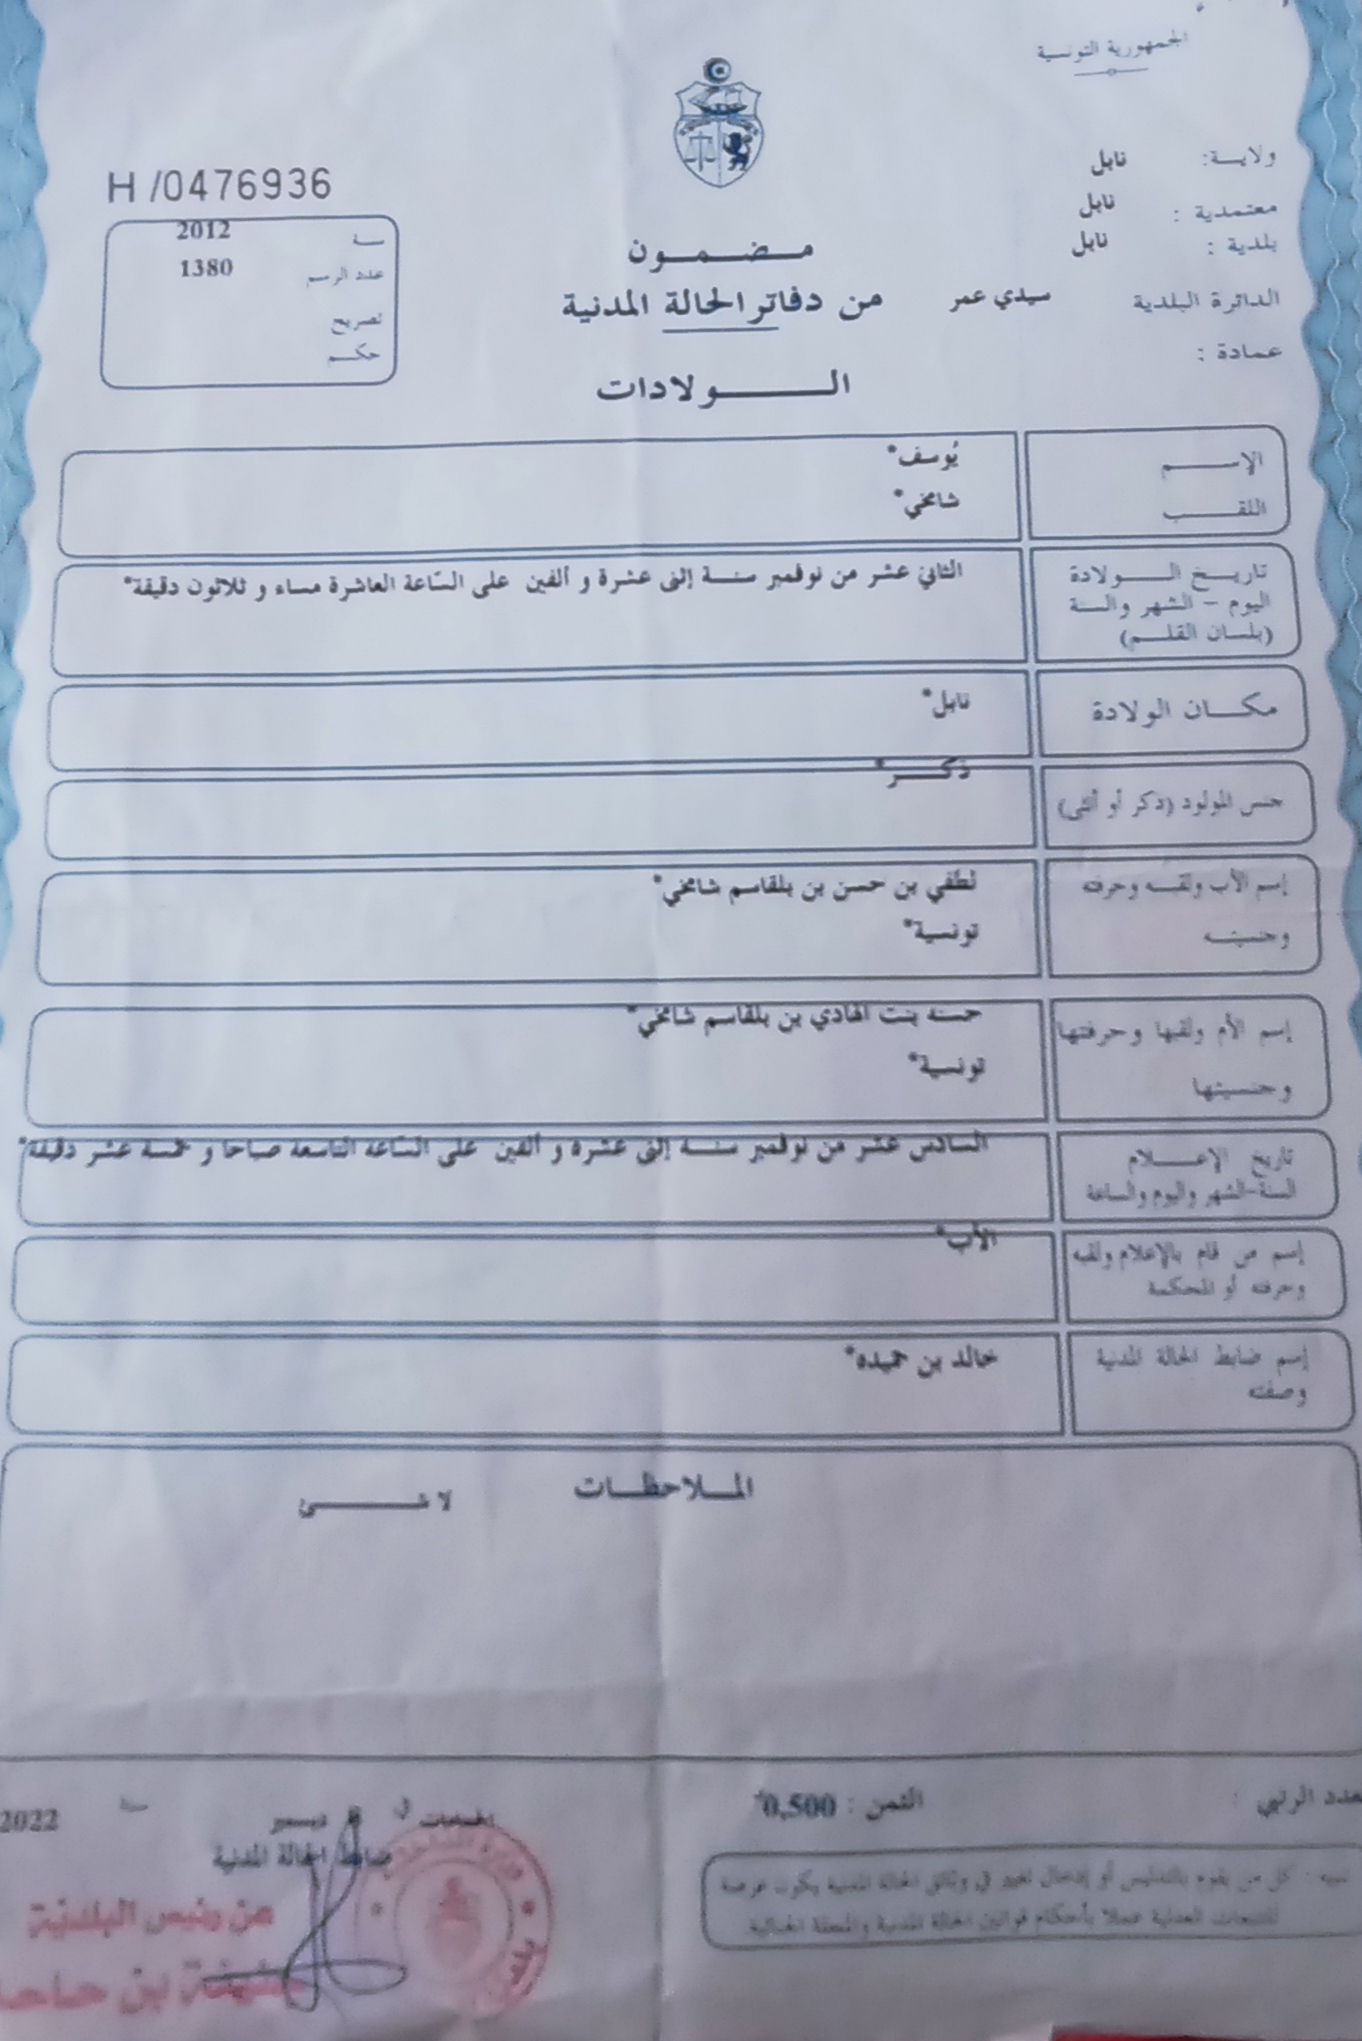 الجمهورية التونسية
ولايــة: نابل
معتمدية : نابل
بلدية : نابل
الدائرة البلدية سيدي عمر
عمادة :
H /0476936
سنة 2012
عدد الرسم 1380
تصريح
حكــم
مـضـمـون
من دفاتر الحالة المدنية
الــولادات
الإســـم يُوسف*
اللقــب شامخي*
تاريــخ الــولادة
اليوم – الشهر والسنة
(بلسان القلــم)
الثاني عشر من نوفمبر سنــة إثنى عشرة و ألفين على السّاعة العاشرة مساء و ثلاثون دقيقة*
مكــان الولادة نابل*
جنس المولود (ذكر أو أنثى) ذكــر*
إسم الأب ولقبــه وحرفته لطفي بن حسن بن بلقاسم شامخي*
وجنسيتــه تونسية*
إسم الأم ولقبها وحرفتها حسنه بنت الهادي بن بلقاسم شامخي*
وجنسيتها تونسية*
تاريخ الإعـــلام
السنة-الشهر واليوم والساعة
السادس عشر من نوفمبر سنــة إثنى عشرة و ألفين على السّاعة التاسعة صباحا و خمسة عشر دقيقة*
إسم من قام بالإعلام ولقبه الأب*
وحرفته أو المحكمة
إسم ضابط الحالة المدنية خالد بن حميده*
وصفته
المـلاحظــات
لا شــــئ
عدد الرتبي :
الثمن : 0,500
تنبيه : كل من يقوم بالتدليس أو إدخال تغيير في وثائق الحالة المدنية يكون عرضة
للتتبعات العدلية عملا بأحكام قوانين الحالة المدنية والمجلة الجنائية
في ديسمبر سنة 2022
ضابط الحالة المدنية
عن رئيس البلديّة
بن